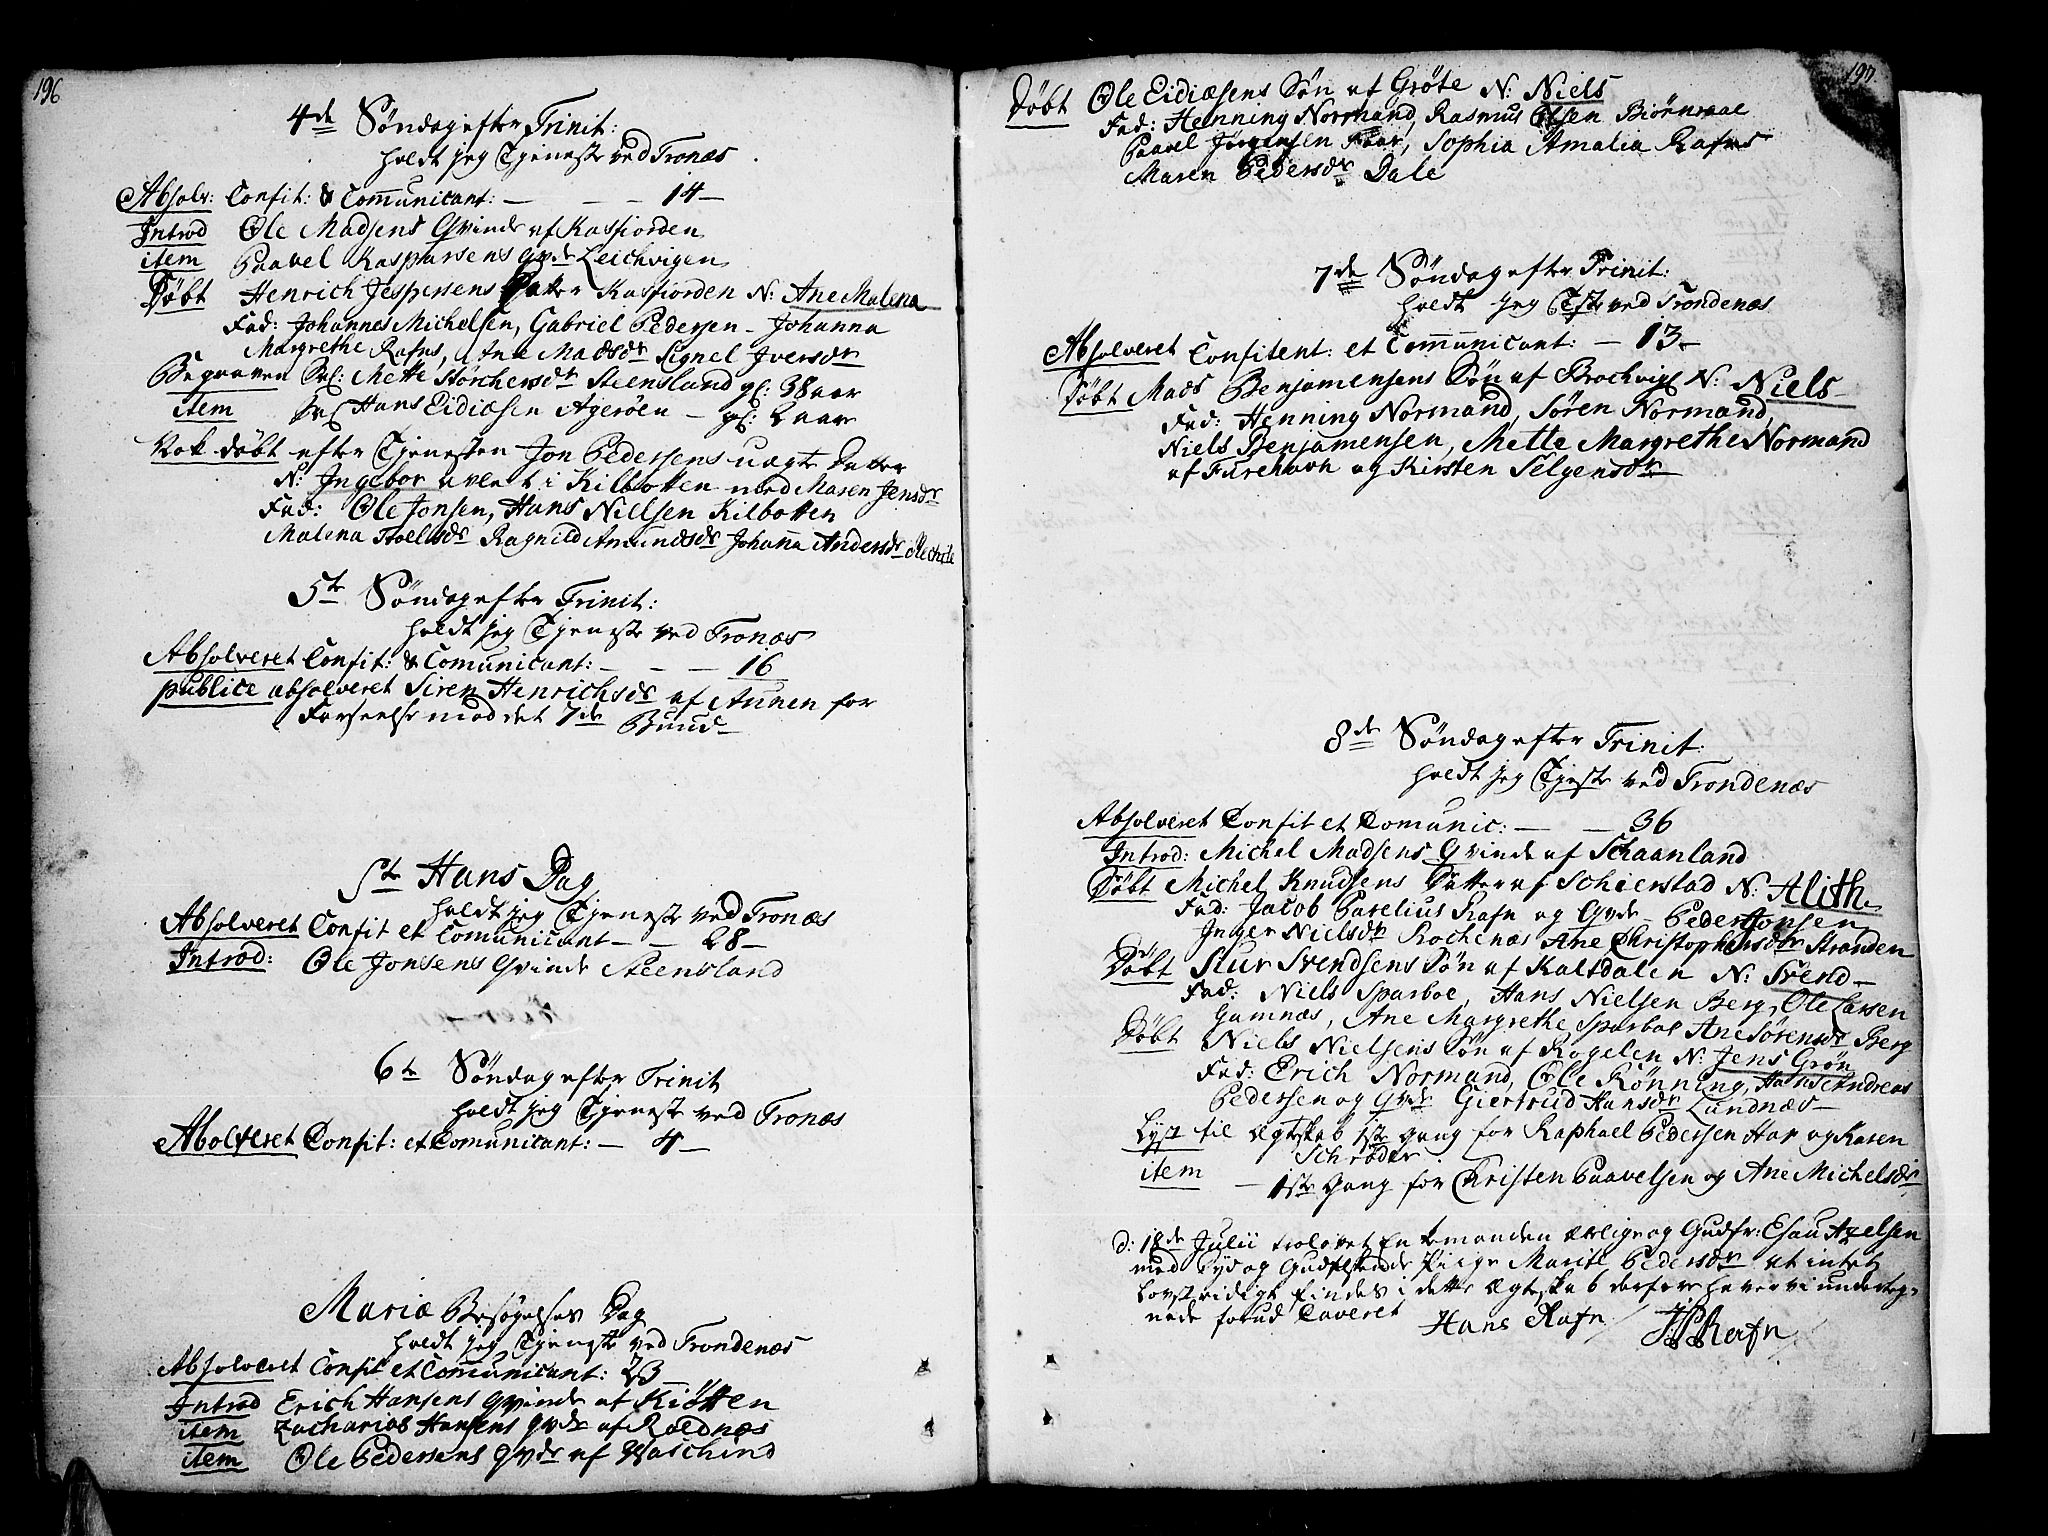 196
4de Søndag efter Trinit:
holdt jeg Tjeneste ved Tronæs
Absolv: Confit: & Communicant: — — — 14 —
Introd Ole Madsens Qvinde af Kasfiorden
item Paavel Kaspersens qvde Leichvigen
Døbt Henrich Jespersens Datter Kasfiorden N: Ane Malena
Fad: Johannes Michelsen, Gabriel Pedersen — Johanna
Margrethe Rafns, Ane Madsdr Signel Iversdr
Begraven Sel: Mette Størchersdr Steensland gl: 38 aar
item Sel Hans Eidiæsen Agerøen — gl: 2 aar
Nok døbt efter Tjenesten Jon Pedersens uægte Datter
N: Ingebor avlet i Kilbotten med Maren Jensdr
Fad: Ole Jonsen, Hans Nielsen Kilbotten
Malena Roelsdr Ragnild Amundsdr Johanna Andersdr Mechele
5te Søndag efter Trinit:
holdt jeg Tjeneste ved Tronæs
Absolveret Confit: & Comunicant: — — — 16
publice absolveret Siren Henrichsdr af Aunen for
Forseelse mod det 7de Buud —
St Hans Dag
holdt jeg Tjeneste ved Tronæs
Absolveret Confit et Comunicant — — 28 —
Introd: Ole Jonsens Qvinde Steensland
6te Søndag efter Trinit
holdt jeg Tjeneste ved Tronæs
Absolveret Confit: et Comunicant: — 4 —
Mariæ Besøgelses Dag
holdt jeg Tjeneste ved Trondenæs
Absolveret Confit et Communicant: 23
Introd Erich Hansens qvinde af Kiøtten
item Zacharias Hansens qvde af Roldnæs
item Ole Pedersens qvde af Waschind
197
Døbt Ole Eidiæsens Søn af Grøte N: Niels
Fad: Henning Normand, Rasmus Olsen Biørnraae
Paavel Jørgensen Faar, Sophia Amalia Rafns
Maren Pedersdr Dale
7de Søndag efter Trinit:
holdt jeg Tjste ved Trondenæs
Absolveret Confitent: et Communicant: — 13 —
Døbt Mads Benjamensens Søn af Brochvig N: Niels —
Fad: Henning Normand, Søren Normand,
Niels Benjamensen, Mette Margrethe Normand
af Furehavn og Kirsten Selgensdr
8de Søndag efter Trinit:
holdt jeg Tjeste ved Trondenæs
Absolveret Confit et Comunic: — — 36
Introd: Michel Madsens Qvinde af Schaanland
Døbt Michel Knudsens Datter af Schierstad N: Alith
Fad: Jacob Parelius Rafn og Qvde — Peder Jonsen
Inger Nielsdr Rochenæs Ane Christophersdr Stranden
Døbt Siur Svendsens Søn af Kalsdalen N: Svend —
Fad: Niels Sparboe, Hans Nielsen Berg, Ole Larsen
Gamnæs, Ane Margrethe Sparboe Ane Sørensdr Berg
Døbt Niels Nielsens Søn af Rogelen N: Jens Grøn
Fad: Erich Normand, Ole Rønning, Hans Andreas
Pedersen og Qvde Giertrud Hansdr Lundnæs —
Lyst til Ægteskab 1ste gang for Raphael Pedersen Har og Karen
Schrøder
item — 1ste Gang for Christen Paavelsen og Ane Michelsdr
d: 18de Julii trolovet Enkemanden ærlige og Gudfr: Esau Axelsen
med dyd og Gudelskende Piige Marite Pedersdr at intet
lovstridigt findes i dette Ægteskab derfore haver vi underteg-
nede forud Caveret Hans Rafn JPRafn